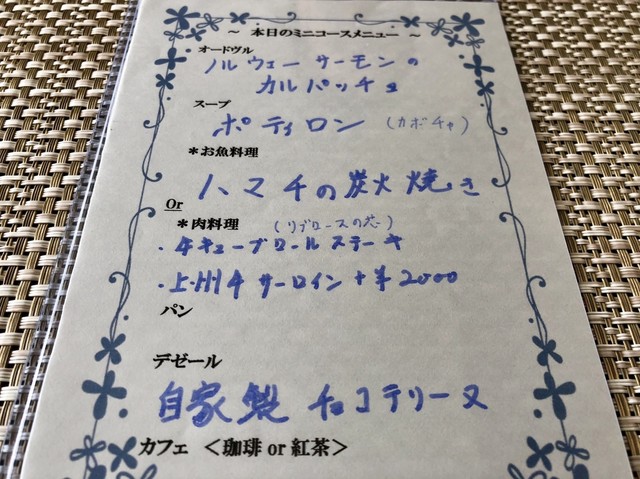 ～ 本日のミニコースメニュー ～
オードヴル
ノルウェーサーモンの
カルパッチョ
スープ
ポティロン (カボチャ)
＊お魚料理
ハマチの炭火焼き
Or
＊肉料理 (リブロースの芯)
・牛キューブロールステーキ
・上州牛サーロイン+¥2000
パン
デゼール
自家製チョコテリーヌ
カフェ ＜珈琲 or 紅茶＞